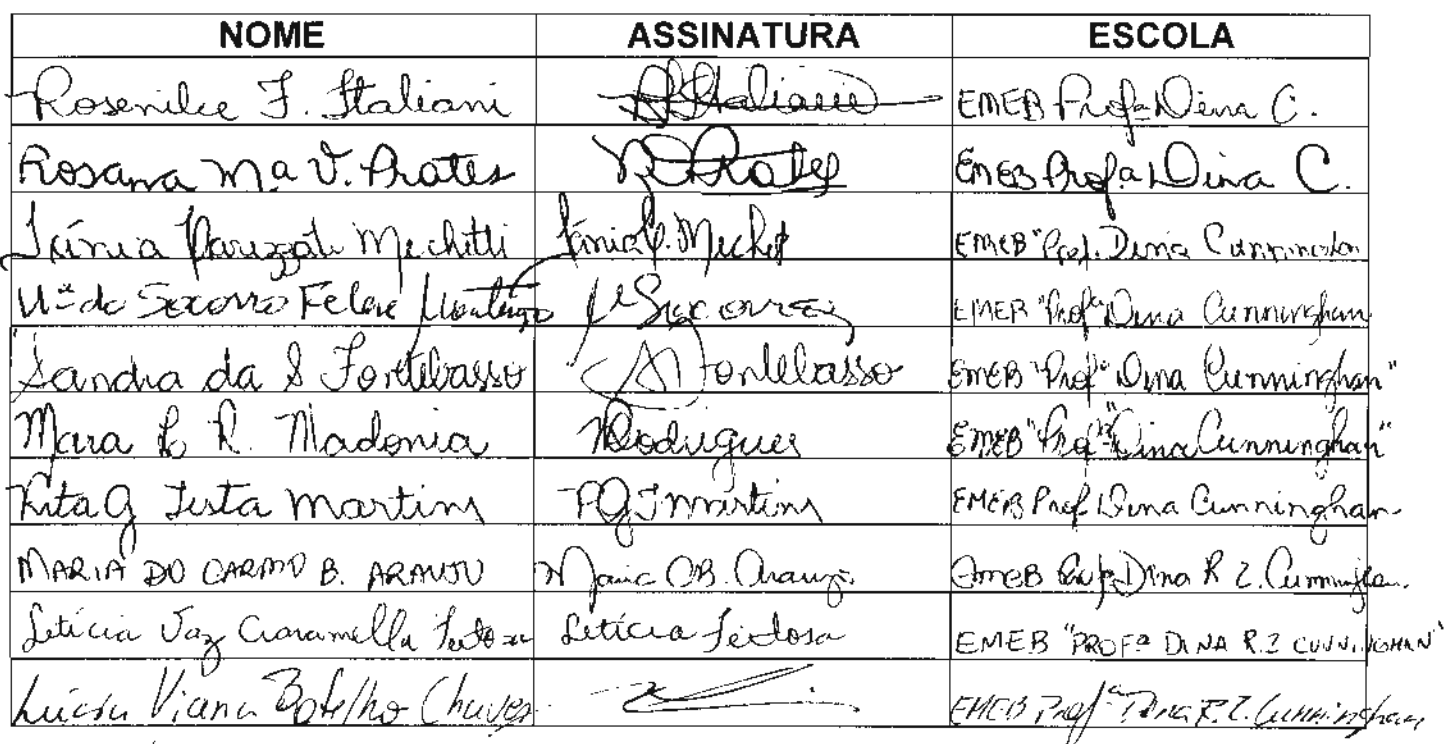 NOME ASSINATURA ESCOLA
Rosenilce F. Italiani RFItaliani EMEB Profª Dina C.
Rosana Mª V. Prates R Prates EMEB Profª Dina C.
Tânia Paruzzati Mechitti Tânia P. Mechit EMEB "Prof. Dina Cunningham
Mª do Socorro Felix Mª Socorro EMEB "Profª Dina Cunningham
Sandra da S Fontebasso Fontebasso EMEB "Profª Dina Cunningham"
Mara R. Madonia MRodrigues EMEB "Profª Dina Cunninghan"
Rita G Testa Martins RGTMartins EMEB Prof Dina Cunningham
MARIA DO CARMO B. ARAUJO Maria CB. Araujo EMEB Profª Dina R Z. Cunningham
Letícia Vaz Ciaramella Feitosa Letícia Feitosa EMEB "PROFª DINA R.Z CUNNINGHAN"
Lúcia Viana Botelho Chaves EMEB Profª Dina R.Z. Cunningham